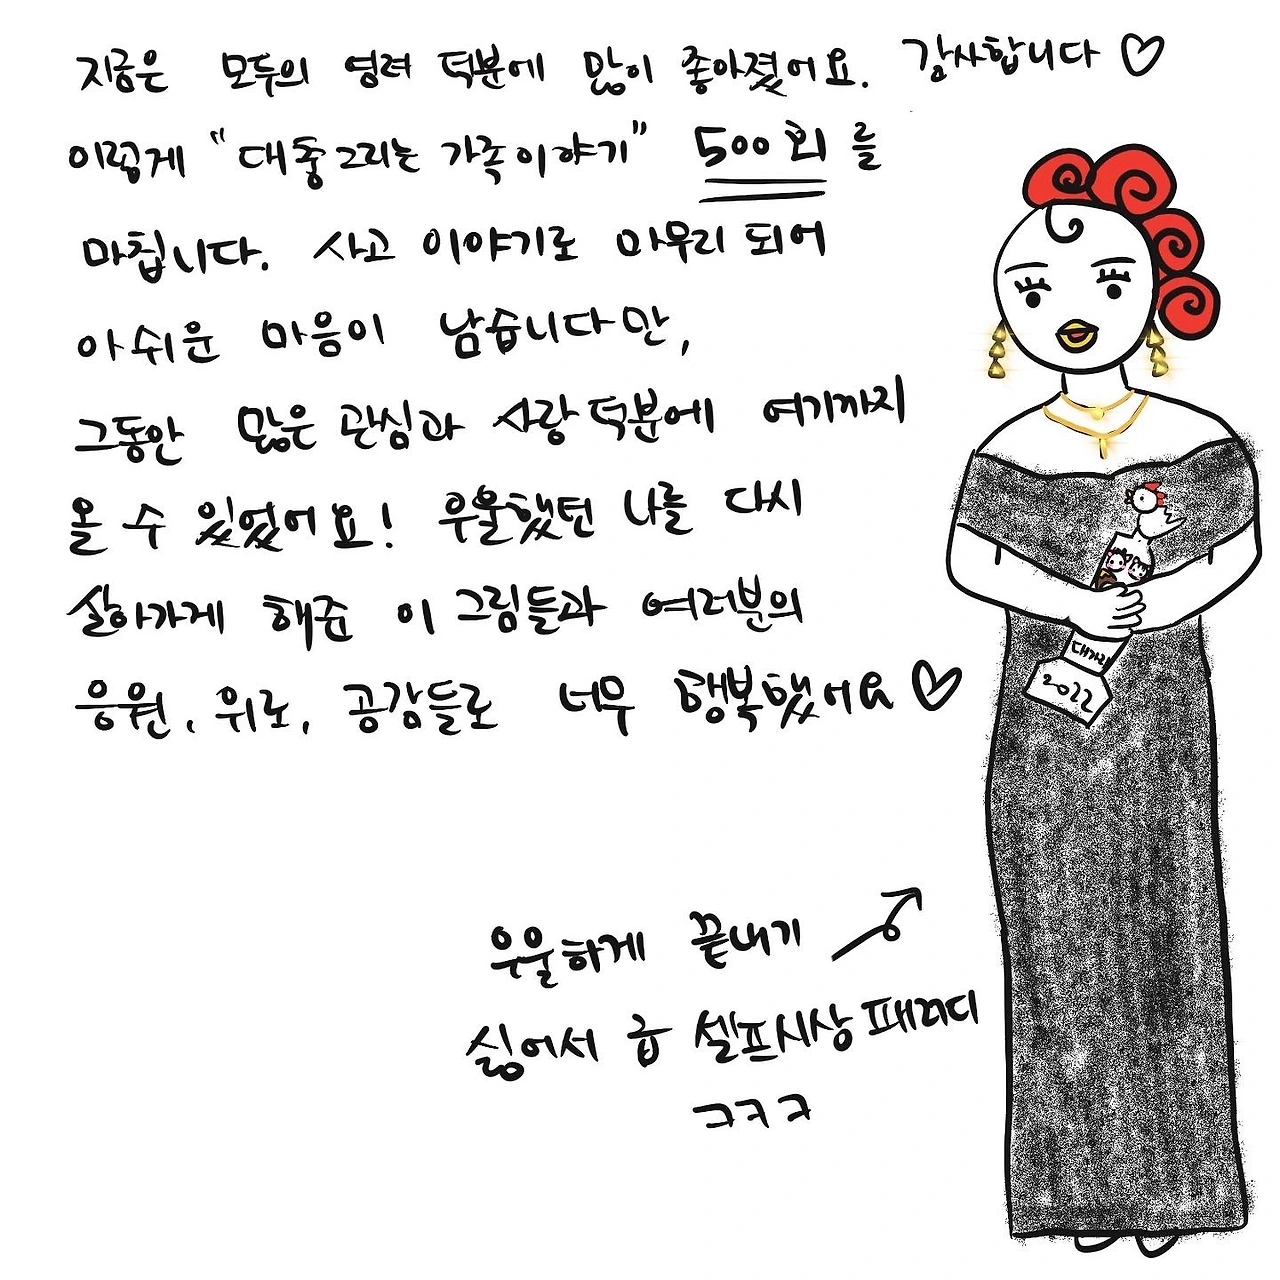 지금은 모두의 염려 덕분에 많이 좋아졌어요. 감사합니다♡
이렇게 "대충그리는 가족이야기" 500회를
마칩니다. 사고 이야기로 마무리 되어
아쉬운 마음이 남습니다만,
그동안 많은 관심과 사랑 덕분에 여기까지
올 수 있었어요! 우울했던 나를 다시
살아가게 해준 이 그림들과 여러분의
응원, 위로, 공감들로 너무 행복했어요♡
대가리
2022
우울하게 끝내기
싫어서 급 셀프시상 패러디
ㅋㅋㅋ